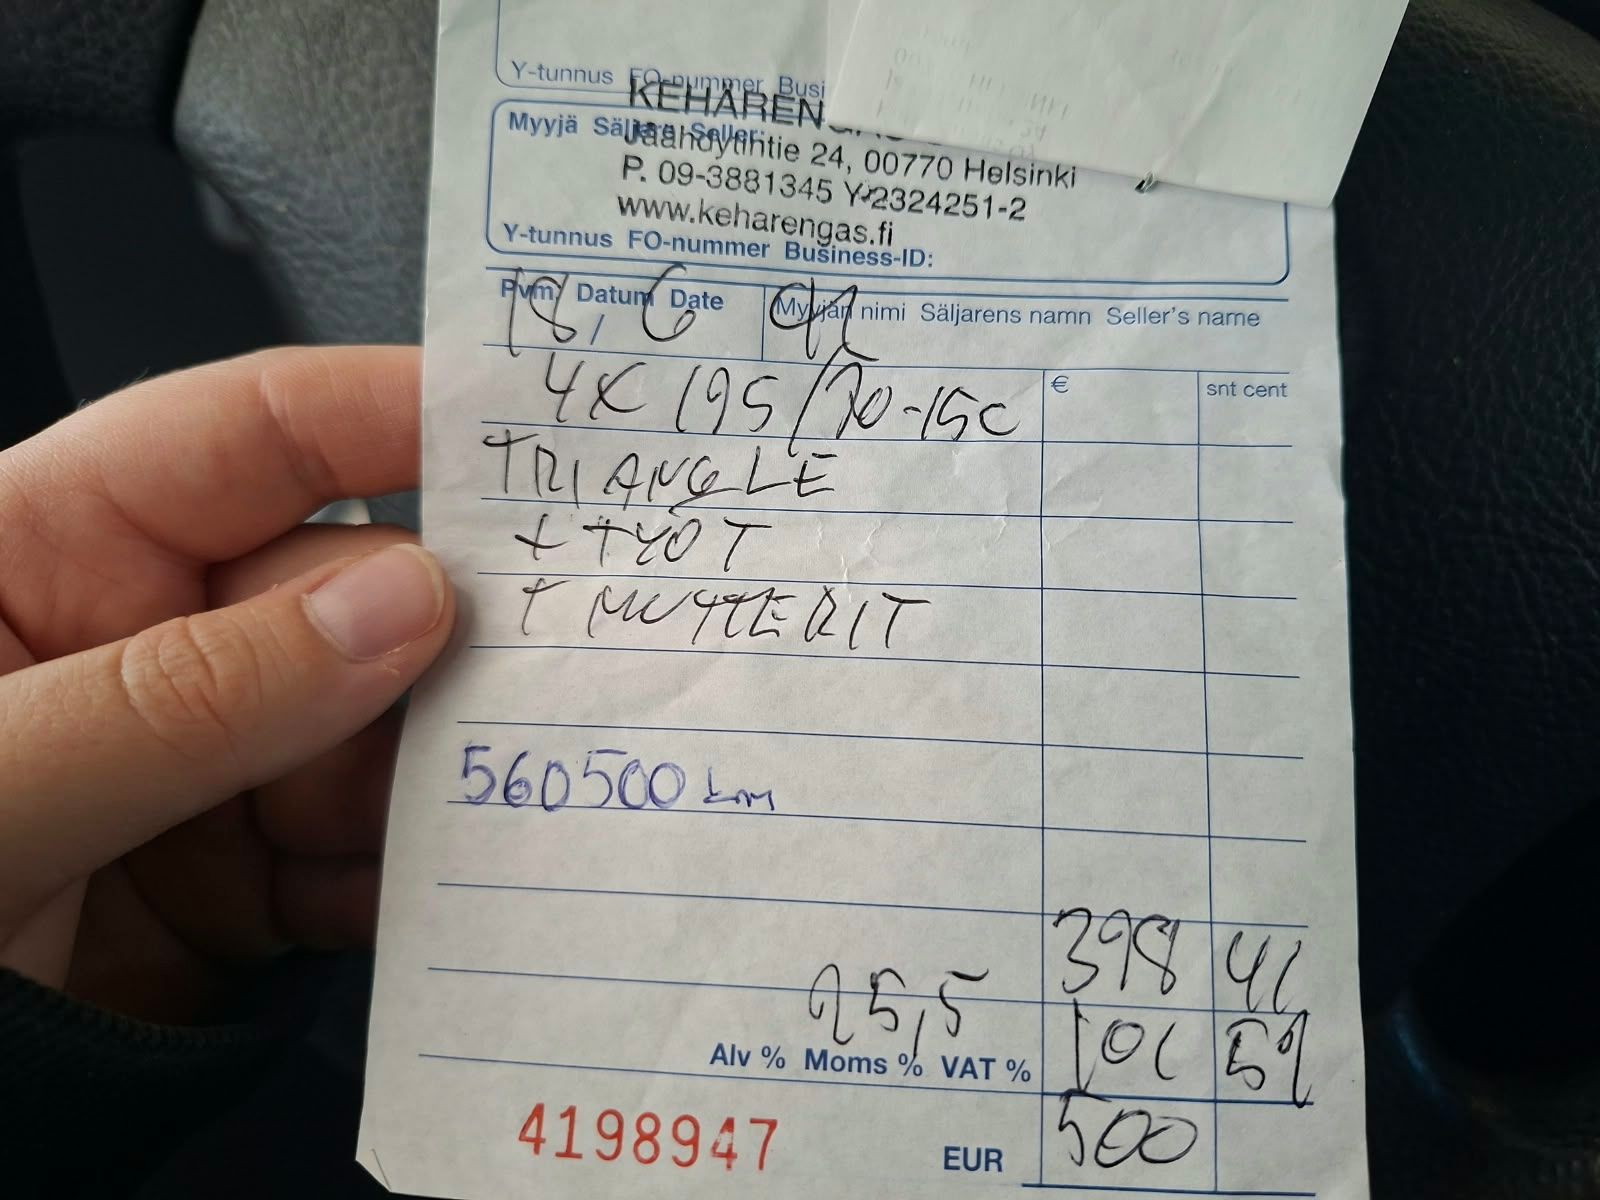 Y-tunnus FO-nummer Busi
KEHÄRENGAS
Myyjä Säljare Seller:
Jäähdytintie 24, 00770 Helsinki
P. 09-3881345 Y-2324251-2
www.keharengas.fi
Y-tunnus FO-nummer Business-ID:
Pvm Datum Date Myyjän nimi Säljarens namn Seller's name
18/6
4X 195/70-15C € snt cent
TRIANGLE
+ TYÖT
+ MUTTERIT
560500 km
398 41
25,5
Alv % Moms % VAT % 101 59
4198947 EUR 500